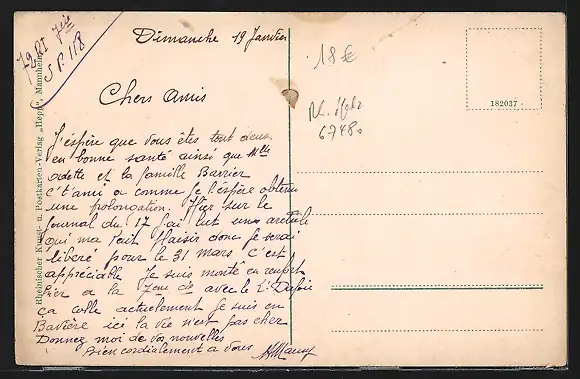 79 RI 7eie
S.P. 118
Dimanche 19 Janvier
Chers Amis
J'éspère que vous êtes tout deux
en bonne santé ainsi que Mlle
odette et la famille Barrier
C't'ami a comme je l'éspère obtenu
une prolongation. Hier sur le
journal du 17 j'ai lut une article
qui ma fait plaisir donc je serai
libéré pour le 31 mars C'est
appréciable Je suis monté en renfort
hier a la 7eme cie avec le Lt
ça colle actuelement je suis en
Bavière ici la vie n'est pas cher
Donnez moi de vos nouvelles
Bien cordialement a vous
Rheinischer Kunst- u. Postkarten-Verlag „Hepp", Mannheim
18 €
6748
182037